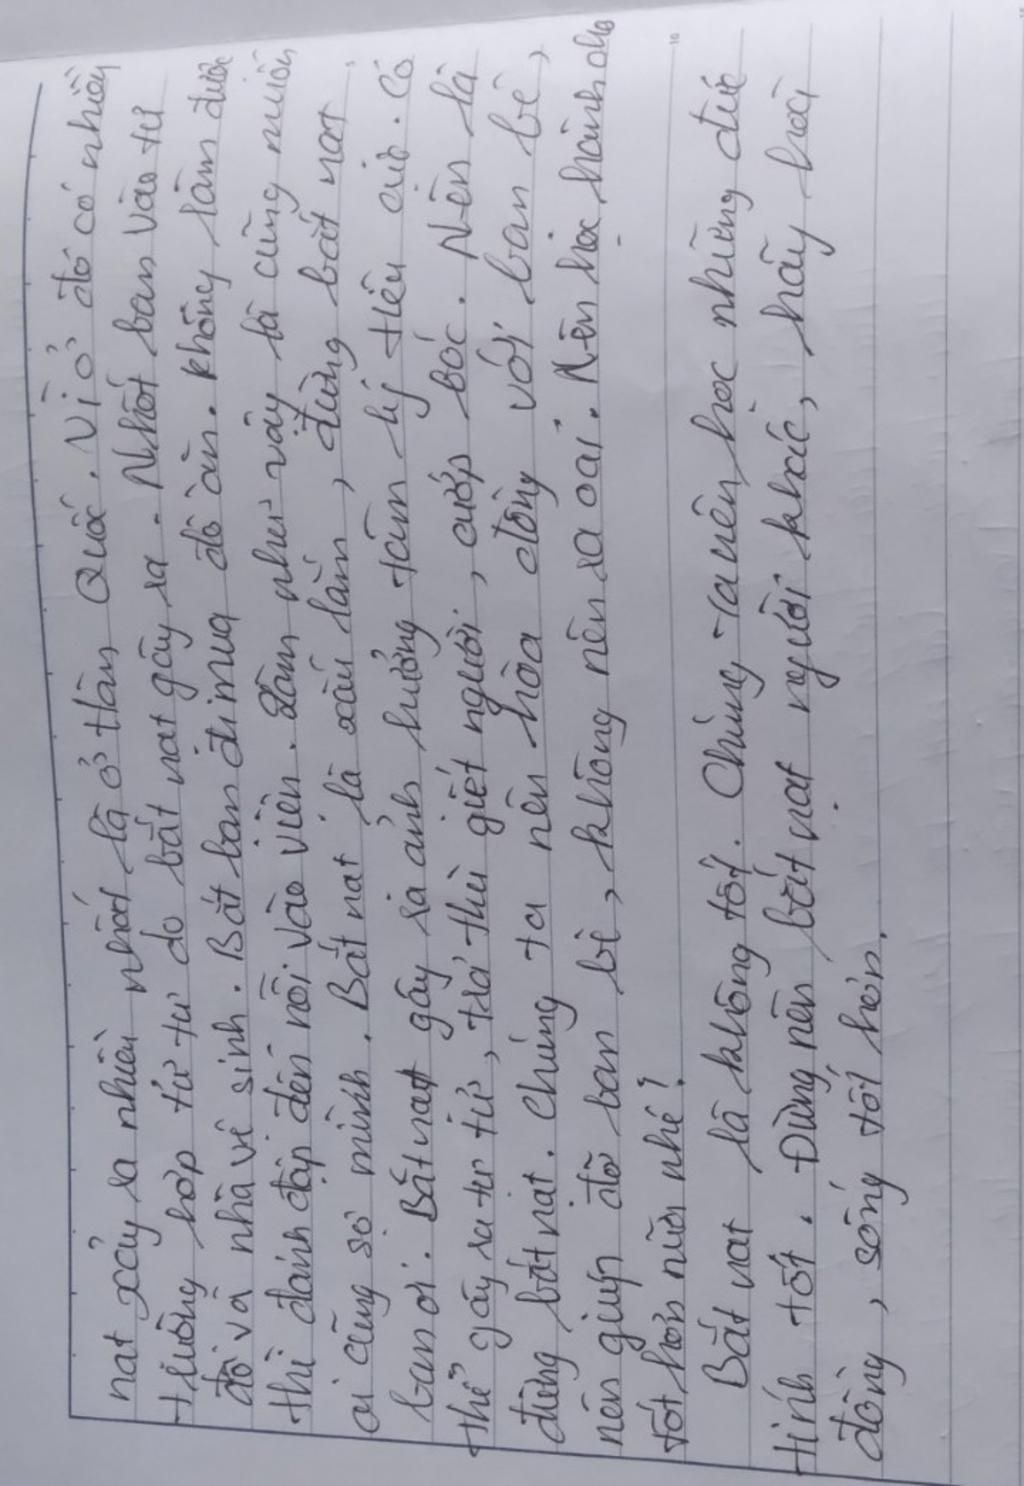 nat xảy ra nhiều nhất là ở Hàn Quốc. Vì ở đó có nhiều
trường hợp tự tử do bắt nạt gây ra. Nhốt bạn vào tủ
đồ và nhà vệ sinh. Bắt bạn đi mua đồ ăn. không làm được
thì đánh đập đến nỗi vào viện. Làm như vậy là cũng muốn
ai cũng sợ mình. Bắt nạt là xấu lắm, đừng bắt nạt
bạn ơi. Bắt nạt gây ra ảnh hưởng tâm lý tiêu cực. Có
thể gây ra tự tử, trả thù giết người, cướp bóc. Nên là
đừng bắt nạt. Chúng ta nên hòa đồng với bạn bè,
nên giúp đỡ bạn bè, không nên ra oai. Nên học hành cho
tốt hơn nữa nhé!
Bắt nạt là không tốt. Chúng ta nên học những đức
tính tốt. Đừng nên bắt nạt người khác, hãy hòa
đồng, sống tốt hơn.